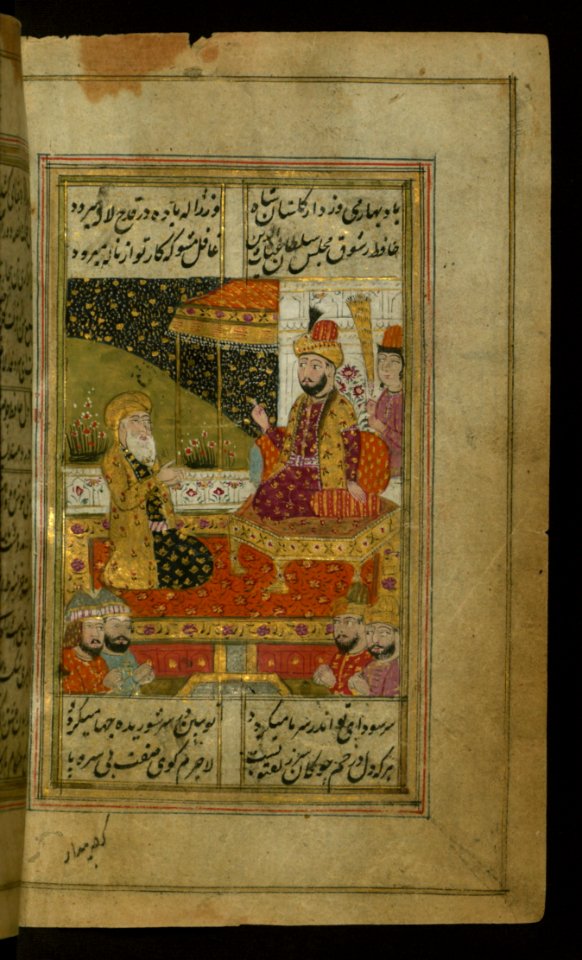 باد بهار می وزد از کلستان شاه وز ژاله باده در قدح لاله میرود
حافظ ز شوق مجلس سلطان غیاث دین غافل مشو که کار تو از ناله میرود
سر سودای تو اندر سر ما میکردد تو ببین در سر شوریده چها میکردد
هر که دل در خم چوکان سر زلف تو بست لاجرم کوی صفت بی سر و پا